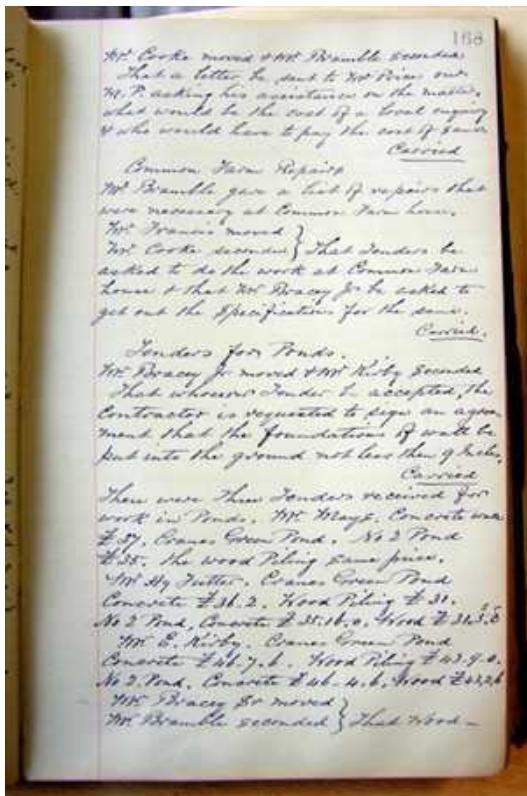 168
Mr. Cooke moved & Mr. Bramble seconded
That a letter be sent to Mr Prices our
M.P. asking his assistance on the matter,
what would be the cost of a local enquiry
& who would have to pay the cost of same
Carried
Common Farm Repairs
Mr. Bramble gave a list of repairs that
were necessary at Common Farm house,
Mr. Francis moved
Mr. Cooke seconded } That Tenders be
asked to do the work at Common Farm
house & that Mr Bracey Jr be asked to
get out the Specifications for the same.
Carried.
Tenders for Ponds.
Mr. Bracey Jr moved & Mr Kirby seconded
That whosever Tender be accepted, the
Contractor is requested to sign an agree
ment that the foundations of wall be
put into the ground not less than 9 Inches,
Carried
There were Three Tenders received for
work in Ponds. Mr. Mays. Concrete wall
£37. Cranes Green Pond. No 2 Pond
£35. the wood Piling same price.
Mr Hy Tutter. Cranes Green Pond
Concrete £36.2. Wood Piling £31.
No 2 Pond, Concrete £35.16.0. Wood £31.5.
Mr E. Kirby. Cranes Green Pond
Concrete £46.7.6. Wood Piling £43.9.0.
No 2 Pond. Concrete £46.4.6. Wood
Mr. Bracey Sr moved
Mr. Bramble seconded } That Wood-